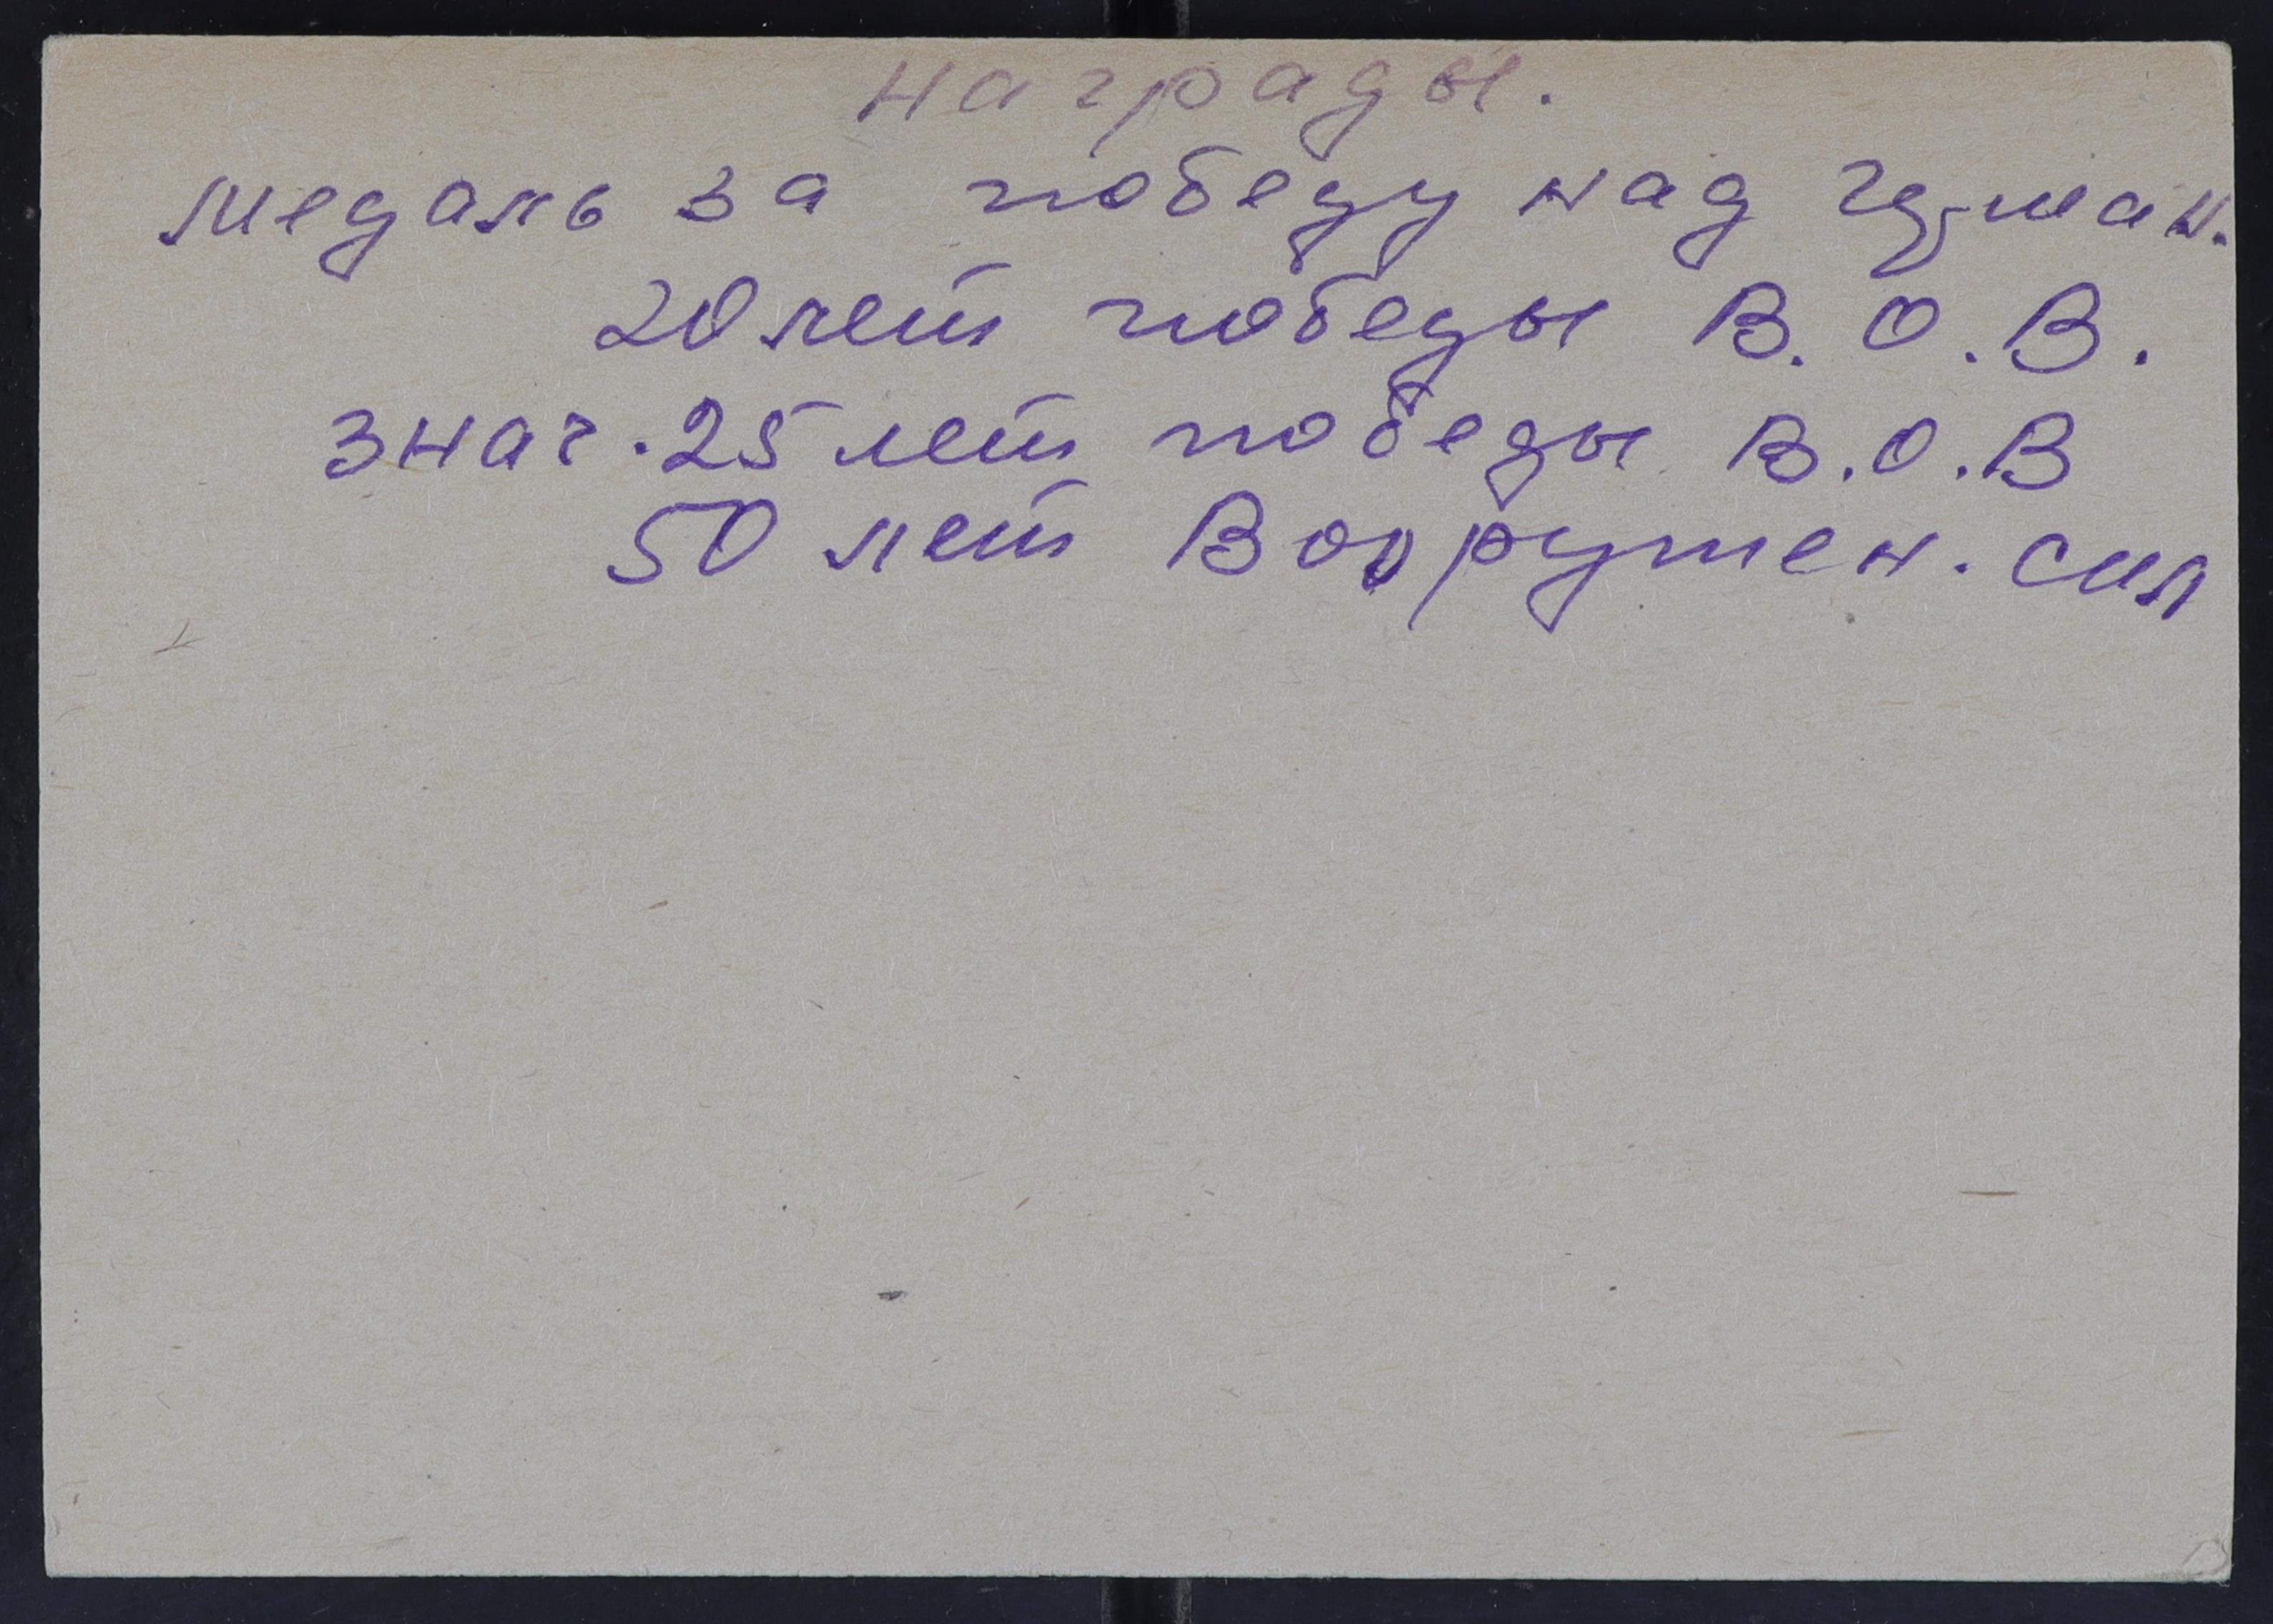 награды.
медаль за победу над герман.
20 лет победы В. О. В.
знач. 25 лет победы В. О. В
50 лет Вооружен. сил